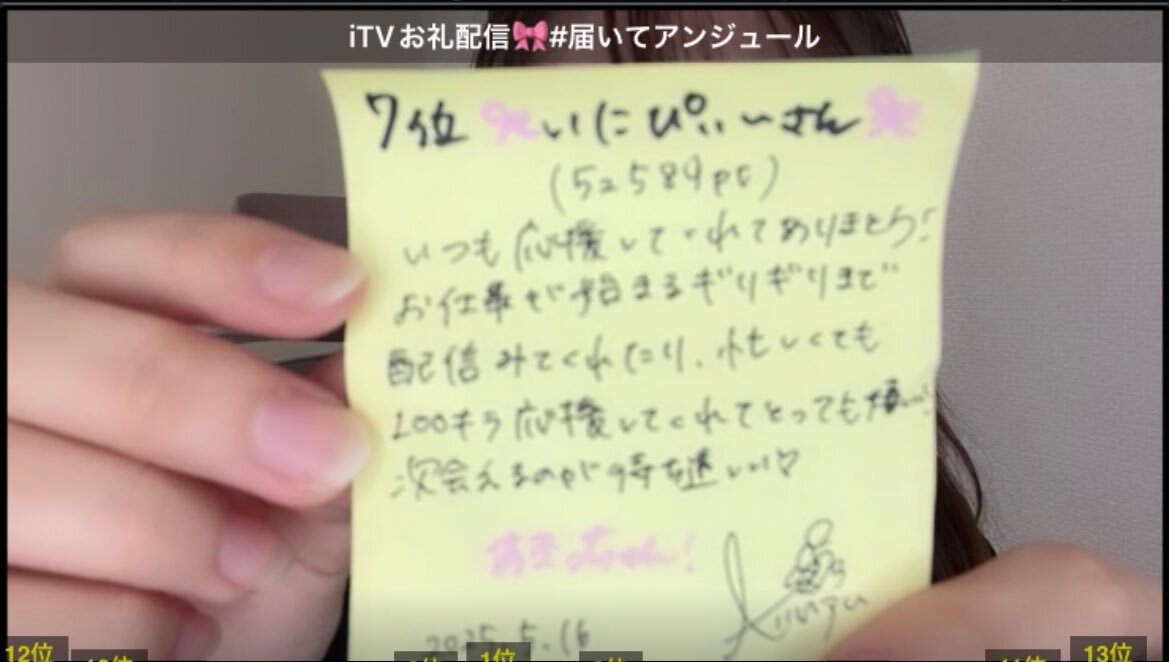 iTVお礼配信🎀#届いてアンジュール
7位 いにぴぃーさん
(52589pt)
いつも応援してくれてありがとう!
お仕事が始まるギリギリまで
配信みてくれたり、忙しくても
100キラ応援してくれてとっても嬉しい!
次会えるのが待ち遠しい♡
2025.5.16
12位
1位
13位